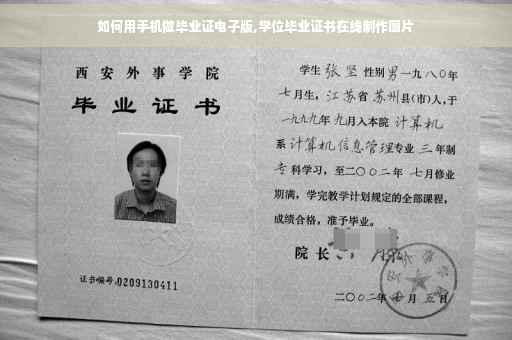 如何用手机做毕业证电子版,学位毕业证书在线制作图片
西安外事学院
毕业证书
证书编号:0209130411
学生 张坚 性别男一九八〇年
七月生，江苏省 苏州县(市)人,于
一九九九年 九月入本院 计算机
系 计算机信息管理专业 三 年制
专 科学习，至二〇〇二年 七月修业
期满，学完教学计划规定的全部课程，
成绩合格，准予毕业。
院长
二〇〇二年 月 五日